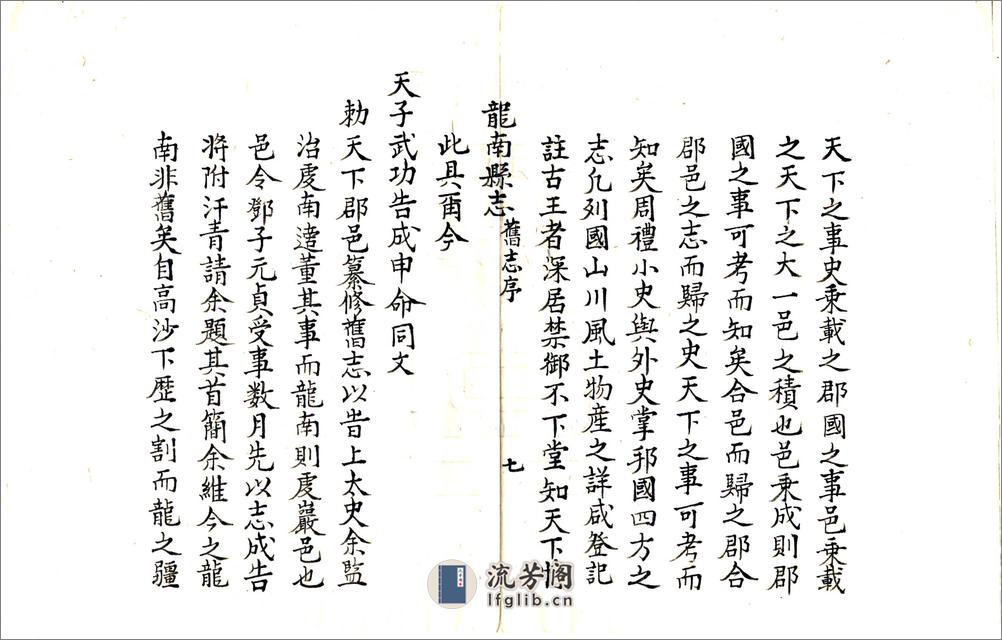 天下之事史乗載之郡國之事邑乗載
之天下之大一邑之積也邑乗成則郡
國之事可考而知矣合邑而歸之郡合
郡邑之志而歸之史天下之事可考而
知矣周禮小史與外史掌邦國四方之
志凡列國山川風土物産之詳咸登記
註古王者深居禁御不下堂知天下情
龍南縣志 舊志序 七
此具爾今
天子武功告成申命同文
勅天下郡邑纂修舊志以昔上太史余監
治虔南逹董其事而龍南則虔巖邑也
邑令鄧子元貞受事数月先以志成告
将附汗青請余題其首簡余維今之龍
南非舊矣自高沙下歴之割而龍之疆
流芳閣
lfglib.cn